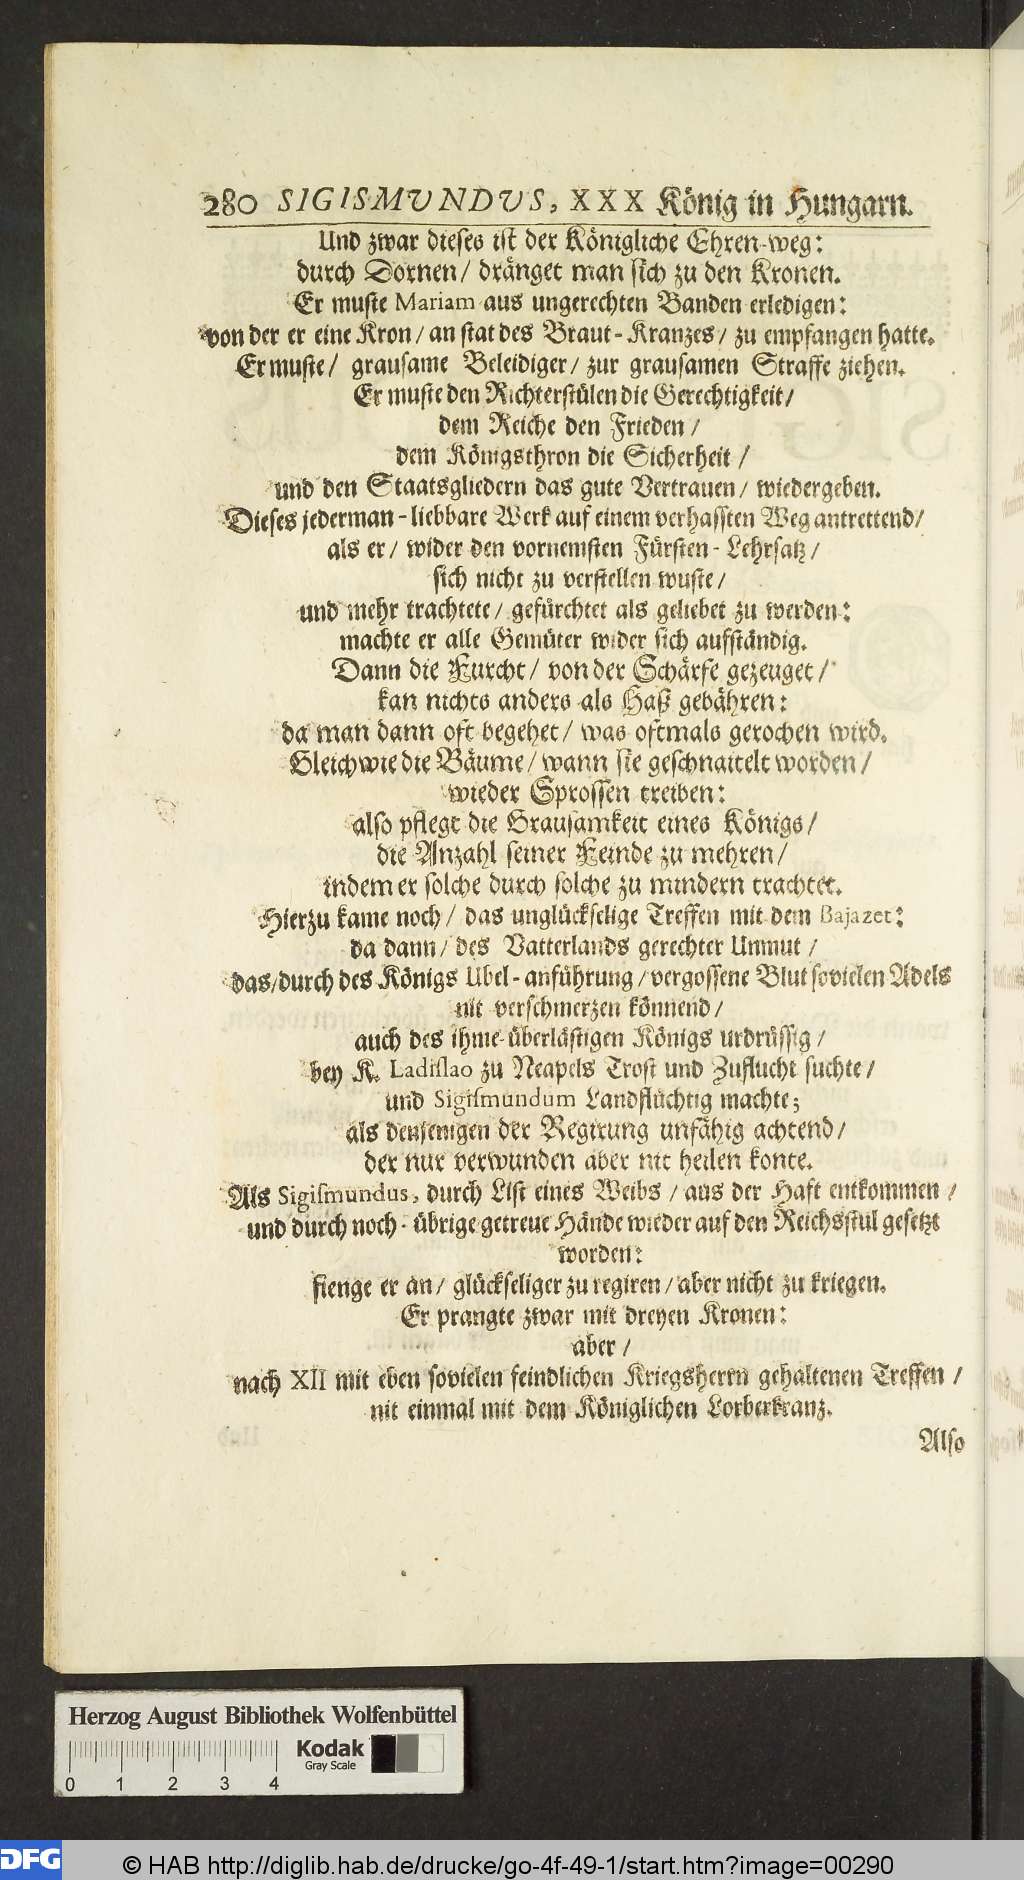 280 SIGISMVNDVS, XXX König in Hungarn.
Und zwar dieses ist der Königliche Ehren-weg:
durch Dornen/ dränget man sich zu den Kronen.
Er muste Mariam aus ungerechten Banden erledigen:
von der er eine Kron/ an stat des Braut-Kranzes/ zu empfangen hatte.
Er muste/ grausame Beleidiger/ zur grausamen Straffe ziehen.
Er muste den Richterstülen die Gerechtigkeit/
dem Reiche den Frieden/
dem Königsthron die Sicherheit/
und den Staatsgliedern das gute Vertrauen/ wiedergeben.
Dieses jederman-liebbare Werk auf einem verhassten Weg antrettend/
als er/ wider den vornemsten Fürsten-Lehrsatz/
sich nicht zu verstellen wuste/
und mehr trachtete/ gefürchtet als geliebet zu werden:
machte er alle Gemüter wider sich aufständig.
Dann die Furcht/ von der Schärfe gezeuget/
kan nichts anders als Haß gebähren:
da man dann oft begehet/ was oftmals gerochen wird.
Gleichwie die Bäume/ wann sie geschnaitelt worden/
wieder Sprossen treiben:
also pflegt die Grausamkeit eines Königs/
die Anzahl seiner Feinde zu mehren/
indem er solche durch solche zu mindern trachtet.
Hierzu kame noch/ das unglückselige Treffen mit dem Bajazet:
da dann/ des Vatterlands gerechter Unmut/
das/durch des Königs Ubel-anführung/vergossene Blut sovielen Adels
nit verschmerzen könnend/
auch des ihme-überlästigen Königs urdrüssig/
bey K. Ladislao zu Neapels Trost und Zuflucht suchte/
und Sigismundum Landflüchtig machte;
als denjenigen der Regirung unfähig achtend/
der nur verwunden aber nit heilen konte.
Als Sigismundus, durch List eines Weibs/ aus der Haft entkommen/
und durch noch-übrige getreue Hände wieder auf den Reichsstul gesetzt
worden:
fienge er an/ glückseliger zu regiren/ aber nicht zu kriegen.
Er prangte zwar mit dreyen Kronen:
aber/
nach XII mit eben sovielen feindlichen Kriegsherrn gehaltenen Treffen/
nit einmal mit dem Königlichen Lorberkranz.
Also
Herzog August Bibliothek Wolfenbüttel
Kodak
Gray Scale
0 1 2 3 4
DFG
© HAB http://diglib.hab.de/drucke/go-4f-49-1/start.htm?image=00290